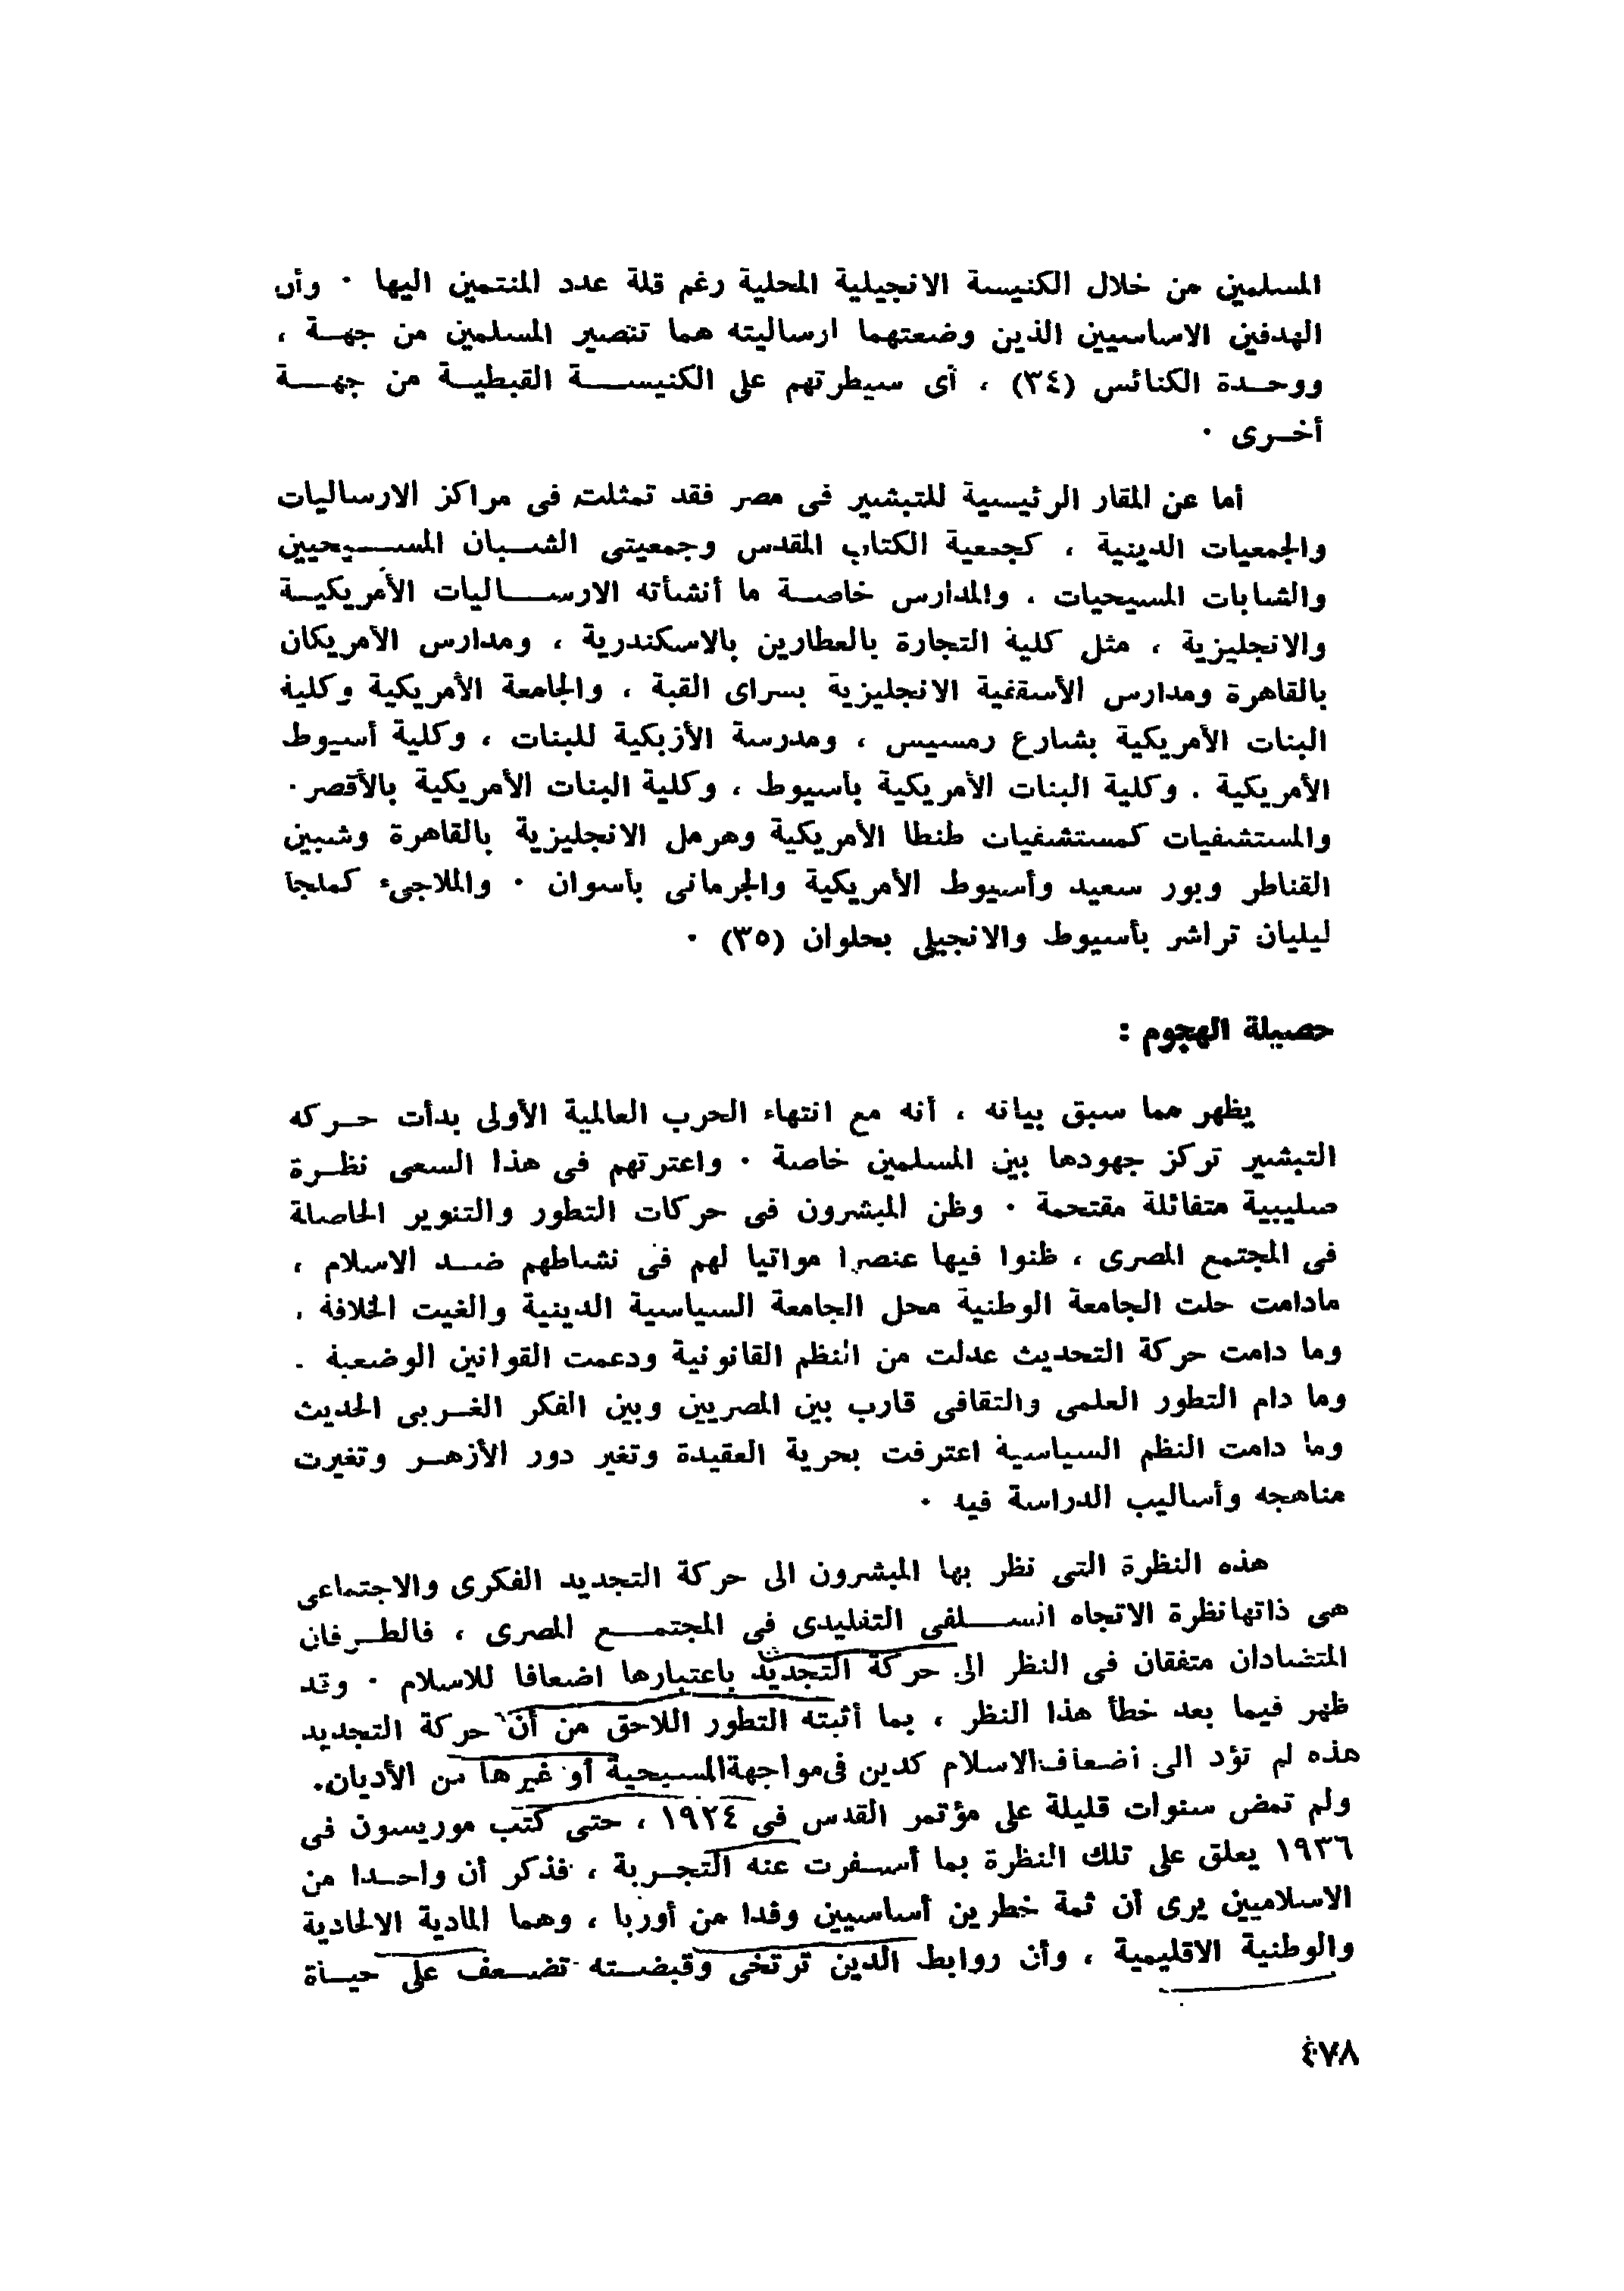 المسلمين من خلال الكنيسة الانجيلية المحلية رغم قلة عدد المنتمين اليها · وأن
الهدفين الاساسيين الذين وضعتهما ارساليته هما تنصير المسلمين من جهة ،
ووحدة الكنائس (٣٤) ، أى سيطرتهم على الكنيسة القبطية من جهة
أخرى ·
أما عن المقار الرئيسية للتبشير فى مصر فقد تمثلت فى مراكز الارساليات
والجمعيات الدينية ، كجمعية الكتاب المقدس وجمعيتى الشبان المسيحيين
والشابات المسيحيات ، والمدارس خاصة ما أنشأته الارساليات الأمريكية
والانجليزية ، مثل كلية التجارة بالعطارين بالاسكندرية ، ومدارس الأمريكان
بالقاهرة ومدارس الأسقفية الانجليزية بسراى القبة ، والجامعة الأمريكية وكلية
البنات الأمريكية بشارع رمسيس ، ومدرسة الأزبكية للبنات ، وكلية أسيوط
الأمريكية . وكلية البنات الأمريكية بأسيوط ، وكلية البنات الأمريكية بالأقصر·
والمستشفيات كمستشفيات طنطا الأمريكية وهرمل الانجليزية بالقاهرة وشبين
القناطر وبور سعيد وأسيوط الأمريكية والجرمانى بأسوان · والملاجىء كملجأ
ليليان تراشر بأسيوط والانجيلى بحلوان (٣٥) ·
حصيلة الهجوم :
يظهر مما سبق بيانه ، أنه مع انتهاء الحرب العالمية الأولى بدأت حركه
التبشير تركز جهودها بين المسلمين خاصة · واعترتهم فى هذا السعى نظرة
صليبية متفائلة مقتحمة · وظن المبشرون فى حركات التطور والتنوير الحاصلة
فى المجتمع المصرى ، ظنوا فيها عنصرا مواتيا لهم فى نشاطهم ضد الاسلام ،
مادامت حلت الجامعة الوطنية محل الجامعة السياسية الدينية والغيت الخلافة ،
وما دامت حركة التحديث عدلت من النظم القانونية ودعمت القوانين الوضعية .
وما دام التطور العلمى والثقافى قارب بين المصريين وبين الفكر الغربى الحديث
وما دامت النظم السياسية اعترفت بحرية العقيدة وتغير دور الأزهر وتغيرت
مناهجه وأساليب الدراسة فيه ·
هذه النظرة التى نظر بها المبشرون الى حركة التجديد الفكرى والاجتماعى
هى ذاتها نظرة الاتجاه السلفى التقليدى فى المجتمع المصرى ، فالطرفان
المتضادان متفقان فى النظر الى حركة التجديد باعتبارها اضعافا للاسلام · وقد
ظهر فيما بعد خطأ هذا النظر ، بما أثبته التطور اللاحق من أن حركة التجديد
هذه لم تؤد الى اضعاف الاسلام كدين فى مواجهة المسيحية أو غيرها من الأديان.
ولم تمض سنوات قليلة على مؤتمر القدس فى ١٩٢٤ ، حتى كتب موريسون فى
١٩٣٦ يعلق على تلك النظرة بما أسفرت عنه التجربة ، فذكر أن واحدا من
الاسلاميين يرى أن ثمة خطرين أساسيين وفدا من أوربا ، وهما المادية الالحادية
والوطنية الاقليمية ، وأن روابط الدين ترتخى وقبضته تضعف على حياة
٤٧٨